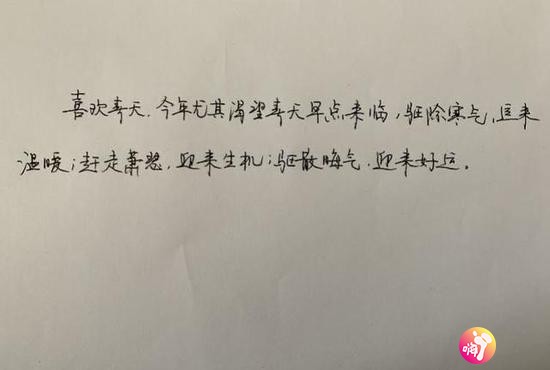 喜欢春天.今年尤其渴望春天早点来临,驱除寒气,迎来
温暖;赶走萧瑟,迎来生机;驱散晦气.迎来好运。
嗨